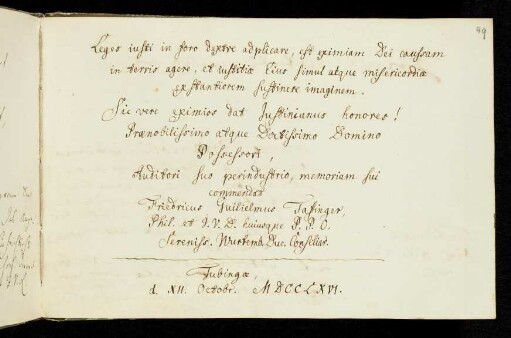 89
Leges iusti in foro dextre adplicare, est eximiam Dei caussam
in terris agere, et iustitiæ Eius simul atque misericordiæ
exstantiorem sustinere imaginem.
Sic vere eximios dat Justinianus honores!
Prænobilissimo atque Doctissimo Domino
Possessori,
Auditori suo perindustrio, memoriam sui
commendat
Fridricus Guilielmus Tafinger,
Phil. et J. V. D. huiusque P. P. O.
Sereniss. Wurtemb. Duc. Consiliar.
Tubingæ,
d. XII. Octobr. MDCCLXVI.